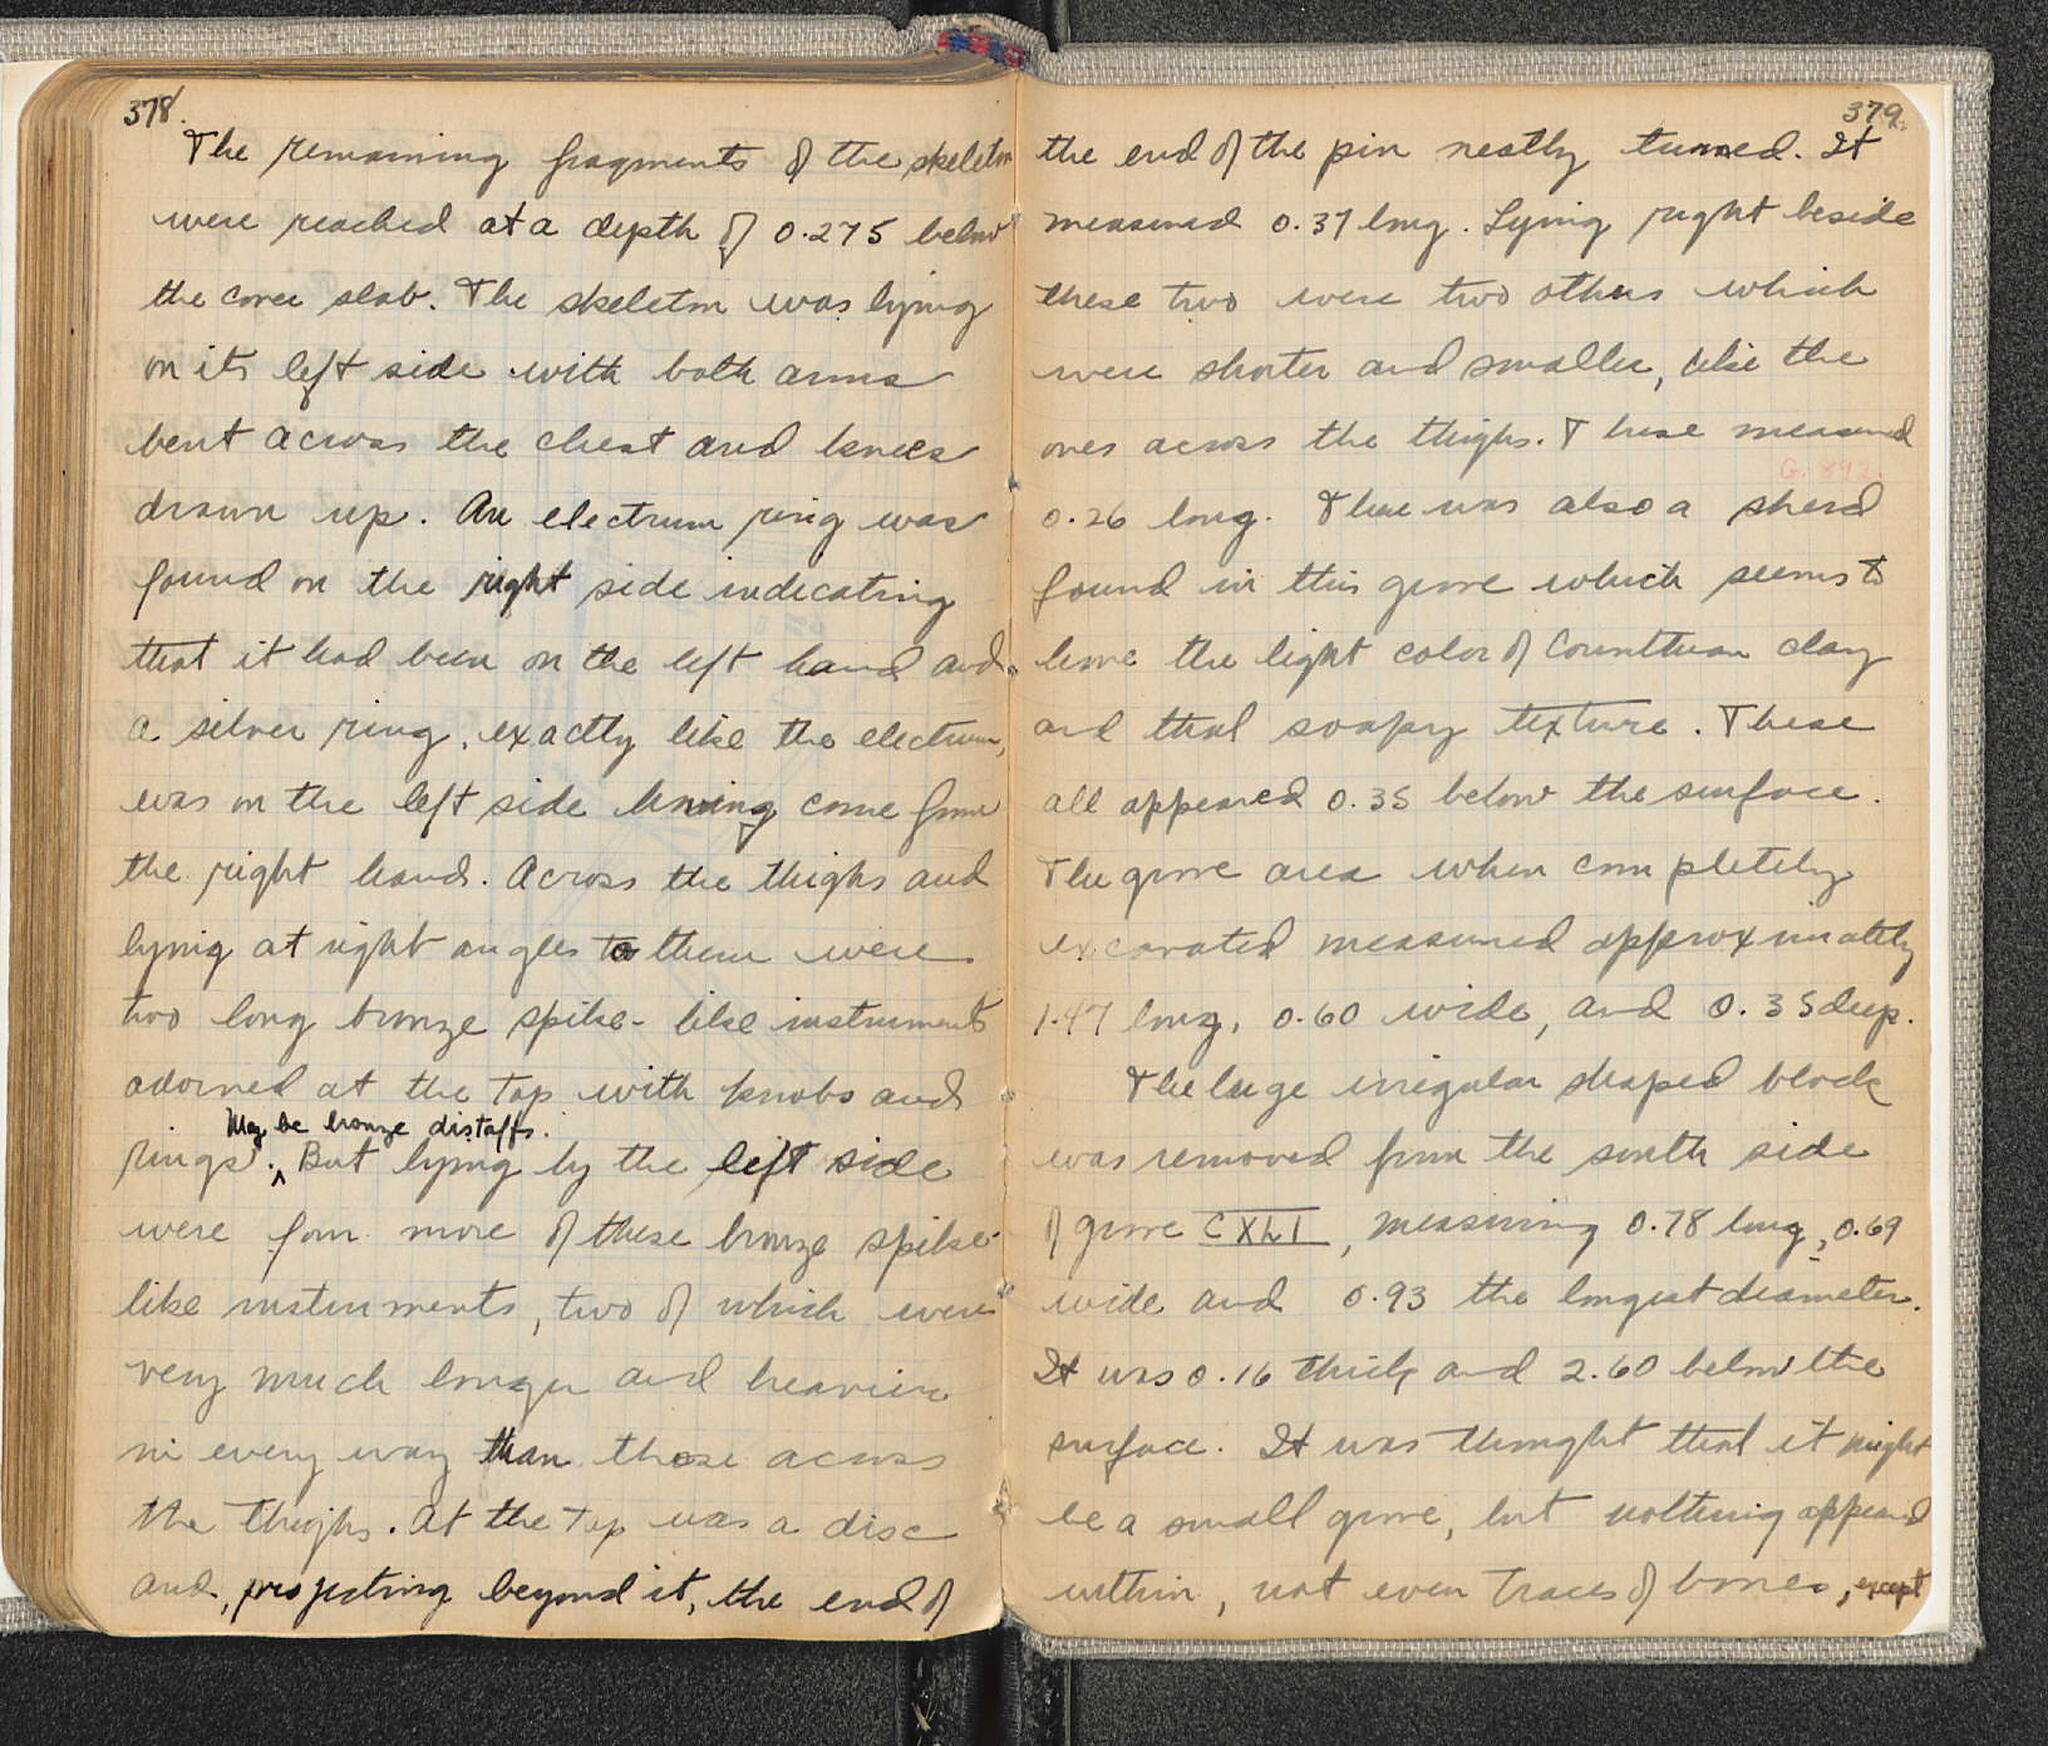 378.
The remaining fragments of the skeleton
were reached at a depth of 0.275 below
the cover slab. The skeleton was lying
on its left side with both arms
bent across the chest and knees
drawn up. An electrum ring was
found on the right side indicating
that it had been on the left hand and
a silver ring, exactly like the electrum,
was on the left side having come from
the right hand. Across the thighs and
lying at right angles to them were
two long bronze spike-like instruments
adorned at the top with knobs and
May be bronze distaffs.
rings. But lying by the left side
were four more of these bronze spike-
like instruments, two of which were
very much longer and heavier
in every way than those across
the thighs. At the top was a disc
and, projecting beyond it, the end of
379.
the end of the pin neatly turned. It
measured 0.37 long. Lying right beside
these two were two others which
were shorter and smaller, like the
ones across the thighs. These measured
0.26 long. There was also a sherd
found in this grave which seems to
have the light color of Corinthian clay
and that soapy texture. These
all appeared 0.35 below the surface.
The grave area when completely
excavated measured approximately
1.47 long, 0.60 wide, and 0.35 deep.
The large irregular shaped block
was removed from the south side
of grave CXLI, measuring 0.78 long, 0.69
wide and 0.93 the longest diameter.
It was 0.16 thick and 2.60 below the
surface. It was thought that it might
be a small grave, but nothing appeared
within, not even traces of bones, except